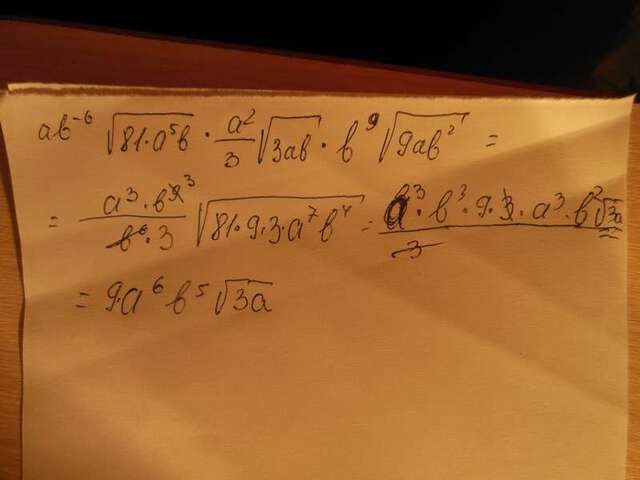 ab⁻⁶ √(81·a⁵b) · a²/3 √(3ab) · b⁹ √(9ab²) =
= (a³·b⁹ ³)/(b⁶·3) √(81·9·3·a⁷b⁴) = (a³·b³·9·3·a³·b²√(3a))/3
= 9·a⁶b⁵√(3a)